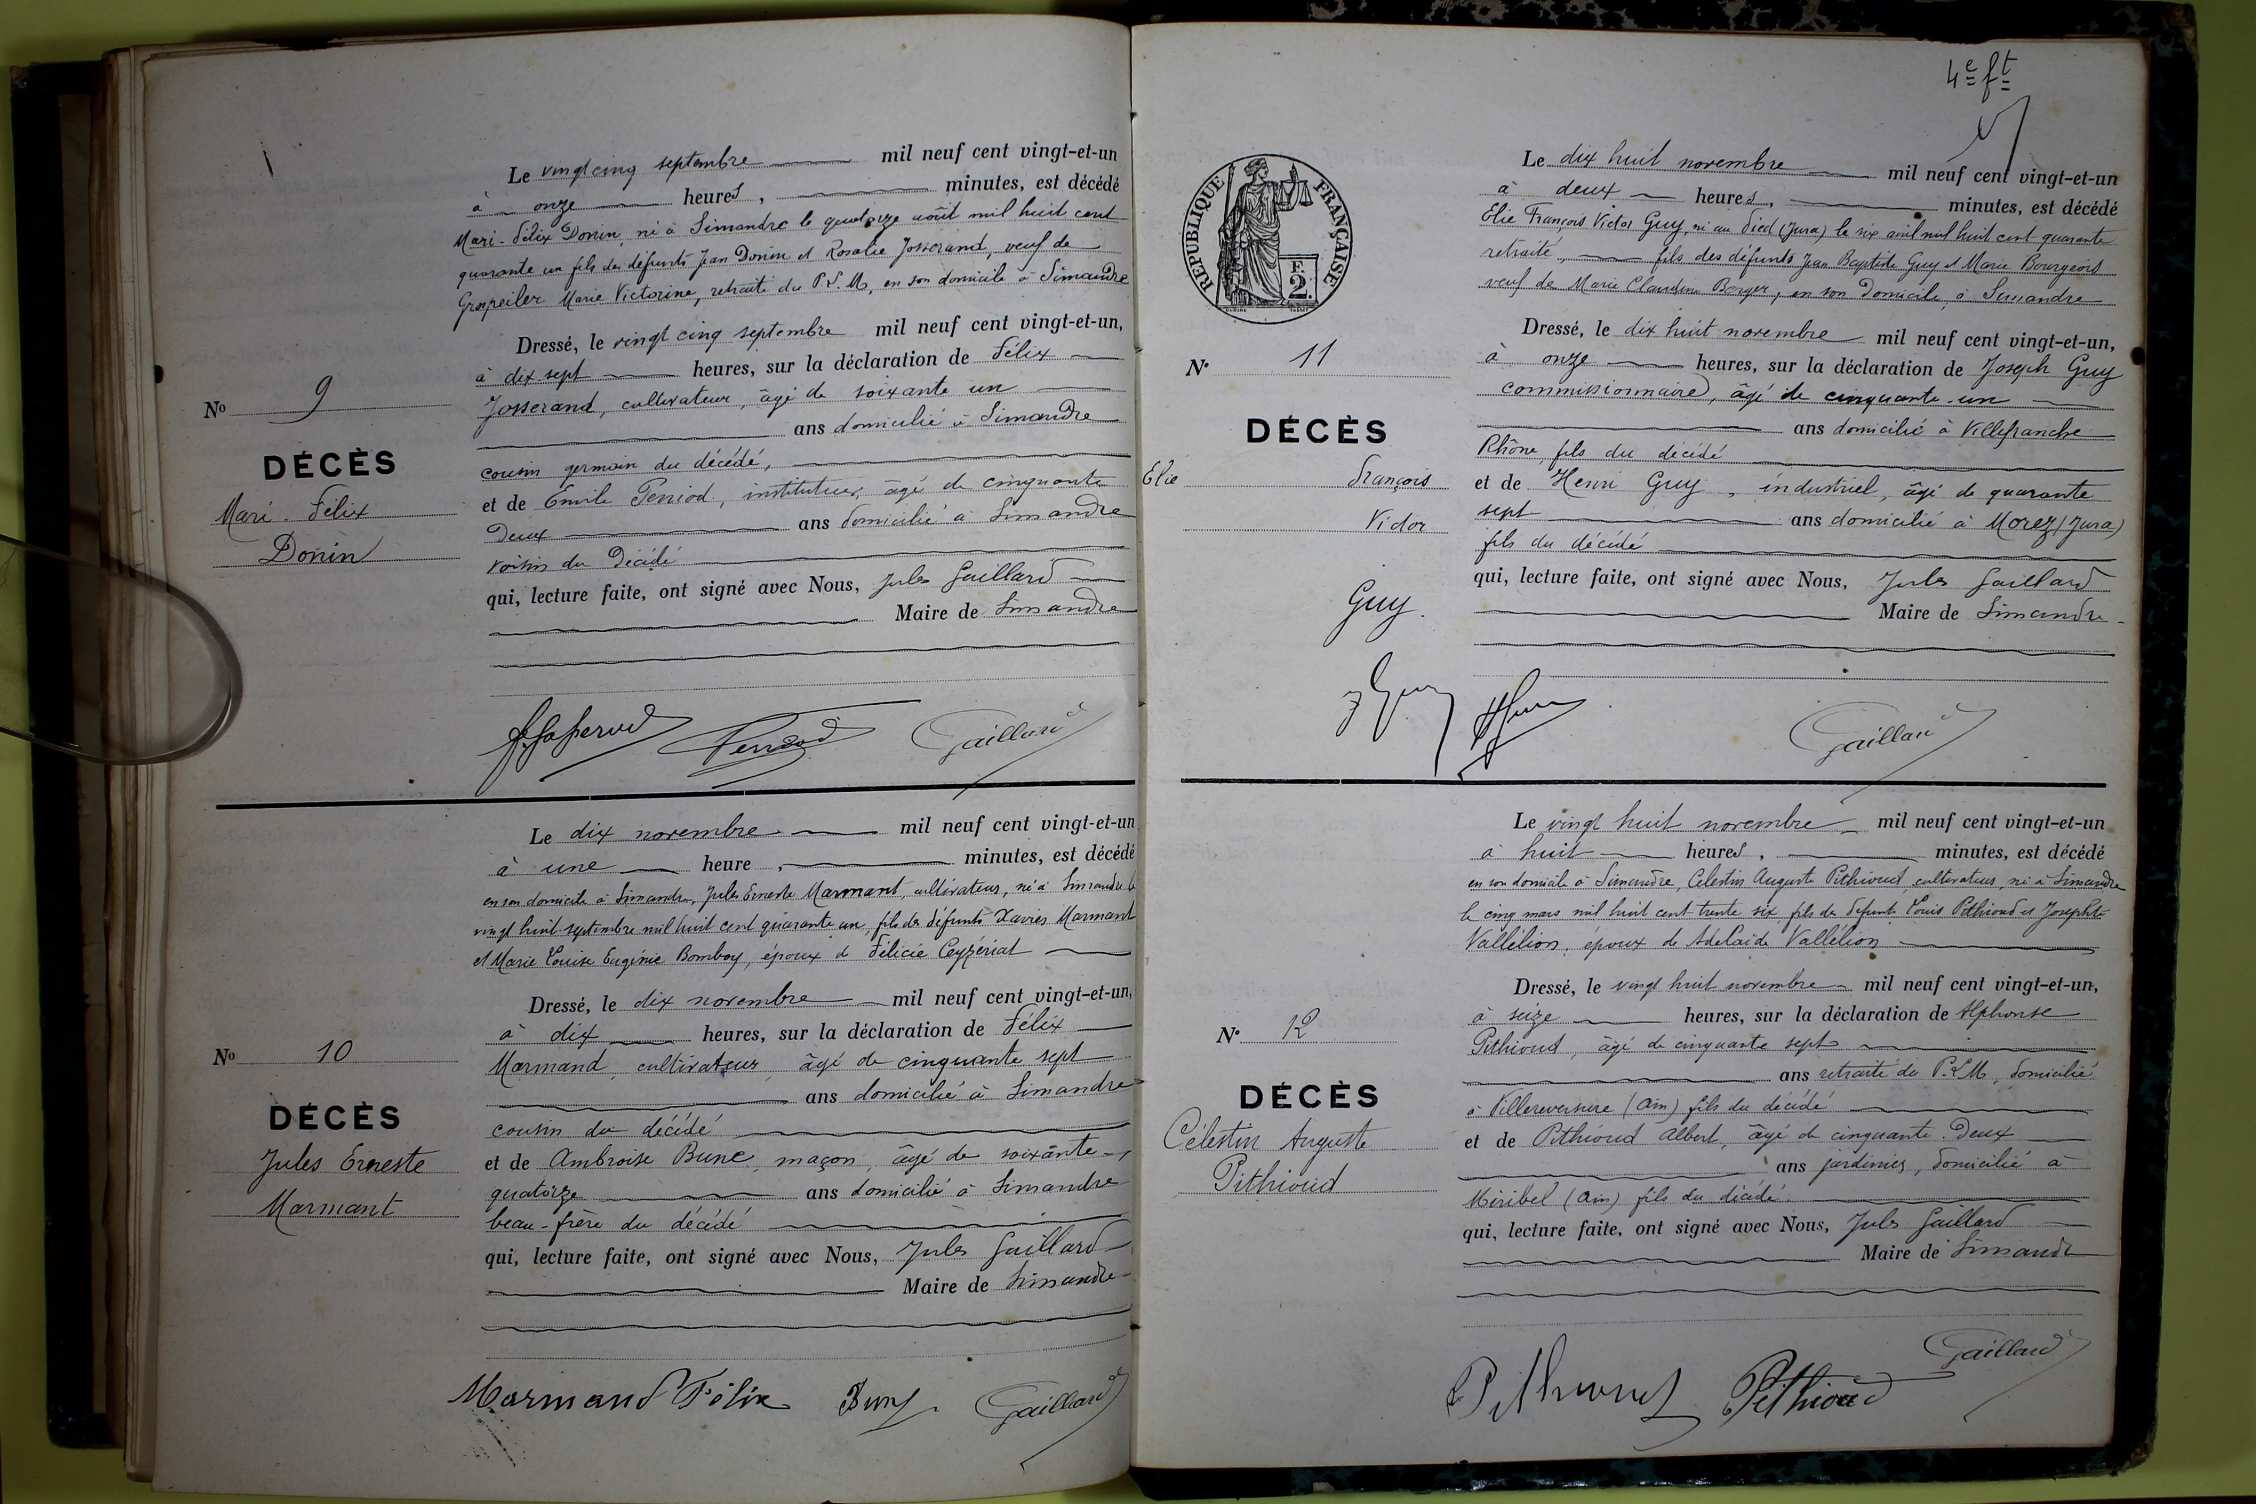 Le vingt cinq septembre mil neuf cent vingt-et-un
à onze heures, minutes, est décédé
Mari-Félix Donin, né à Simandre le quatorze août mil huit cent
quarante un fils des défunts Jean Donin et Rosalie Josserand, veuf de
Marie Victorine, retraité du P.L.M, en son domicile à Simandre
Dressé, le vingt cinq septembre mil neuf cent vingt-et-un,
à dix sept heures, sur la déclaration de Félix
Josserand, cultivateur, âgé de soixante un
ans domicilié à Simandre
cousin germain du décédé,
et de Emile Perriod, instituteur, âgé de cinquante
deux ans domicilié à Simandre
voisin du décédé
qui, lecture faite, ont signé avec Nous, Jules Gaillard
Maire de Simandre
No 9
DÉCÈS
Mari-Félix
Donin
Gaillard
Le dix novembre mil neuf cent vingt-et-un
à une heure, minutes, est décédé
en son domicile à Simandre, Jules Erneste Marmant, cultivateur, né à Simandre le
vingt huit septembre mil huit cent quarante un, fils des défunts Xavier Marmant
et Marie Louise Eugénie Bomboy, époux d Félicie Ceyzériat
Dressé, le dix novembre mil neuf cent vingt-et-un,
à dix heures, sur la déclaration de Félix
Marmand, cultivateur, âgé de cinquante sept
ans domicilié à Simandre
cousin du décédé
et de Ambroise Bune, maçon, âgé de soixante-
quatorze ans domicilié à Simandre
beau-frère du décédé
qui, lecture faite, ont signé avec Nous, Jules Gaillard
Maire de Simandre
No 10
DÉCÈS
Jules Erneste
Marmant
Marmand Félix Gaillard
4e ft
RÉPUBLIQUE FRANÇAISE
2 F.
Le dix huit novembre mil neuf cent vingt-et-un
à deux heures, minutes, est décédé
Elie François Victor Guy, né au Vied (Jura) le six avril mil huit cent quarante
retraité, fils des défunts Jean Baptiste Guy et Marie Bourgeois
veuf de Marie Claudine, en son domicile, à Simandre
Dressé, le dix huit novembre mil neuf cent vingt-et-un,
à onze heures, sur la déclaration de Joseph Guy
commissionnaire, âgé de cinquante-un
ans domicilié à Villefranche
Rhône, fils du décédé
et de Henri Guy, industriel, âgé de quarante
sept ans domicilié à Morez (Jura)
fils du décédé
qui, lecture faite, ont signé avec Nous, Jules Gaillard
Maire de Simandre
No 11
DÉCÈS
Elie François
Victor
Guy.
Gaillard
Le vingt huit novembre mil neuf cent vingt-et-un
à huit heures, minutes, est décédé
en son domicile à Simandre, Celestin Auguste Pithioud, cultivateur, né à Simandre
le cinq mars mil huit cent trente six fils des défunts Louis Pithioud et Josephte
Vallélion, époux de Adelaïde Vallélion
Dressé, le vingt huit novembre mil neuf cent vingt-et-un,
à seize heures, sur la déclaration de Alphonse
Pithioud, âgé de cinquante sept
ans retraité du P.L.M, domicilié
à Villereversure (Ain) fils du décédé
et de Pithioud Albert, âgé de cinquante-deux
ans jardinier, domicilié à
Miribel (Ain) fils du décédé.
qui, lecture faite, ont signé avec Nous, Jules Gaillard
Maire de Simandre
No 12
DÉCÈS
Célestin Auguste
Pithioud
Pithioud Pithioud Gaillard